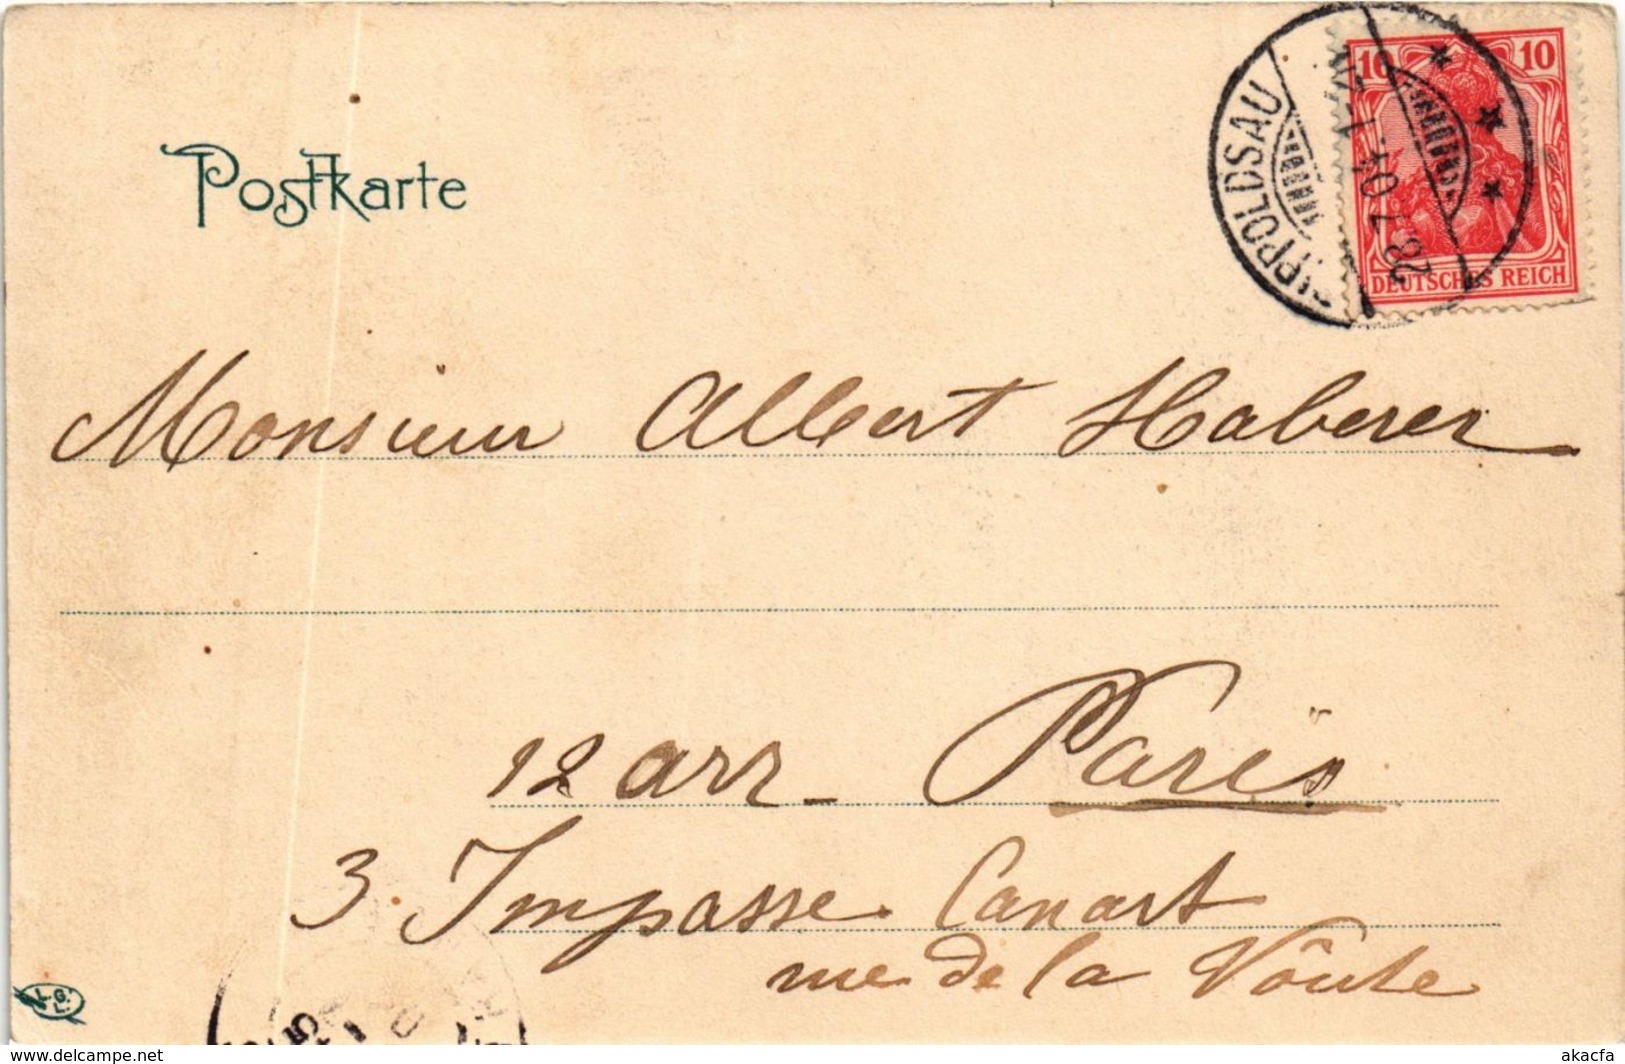 Postkarte
10 10
DEUTSCHES REICH
RIPPOLDSAU
28.7.04.
Monsieur Albert Haberer
12 arr_ Paris
3. Impasse Canart
rue de la Voûte
L.G.
L.
https://www.delcampe.net
akacfa